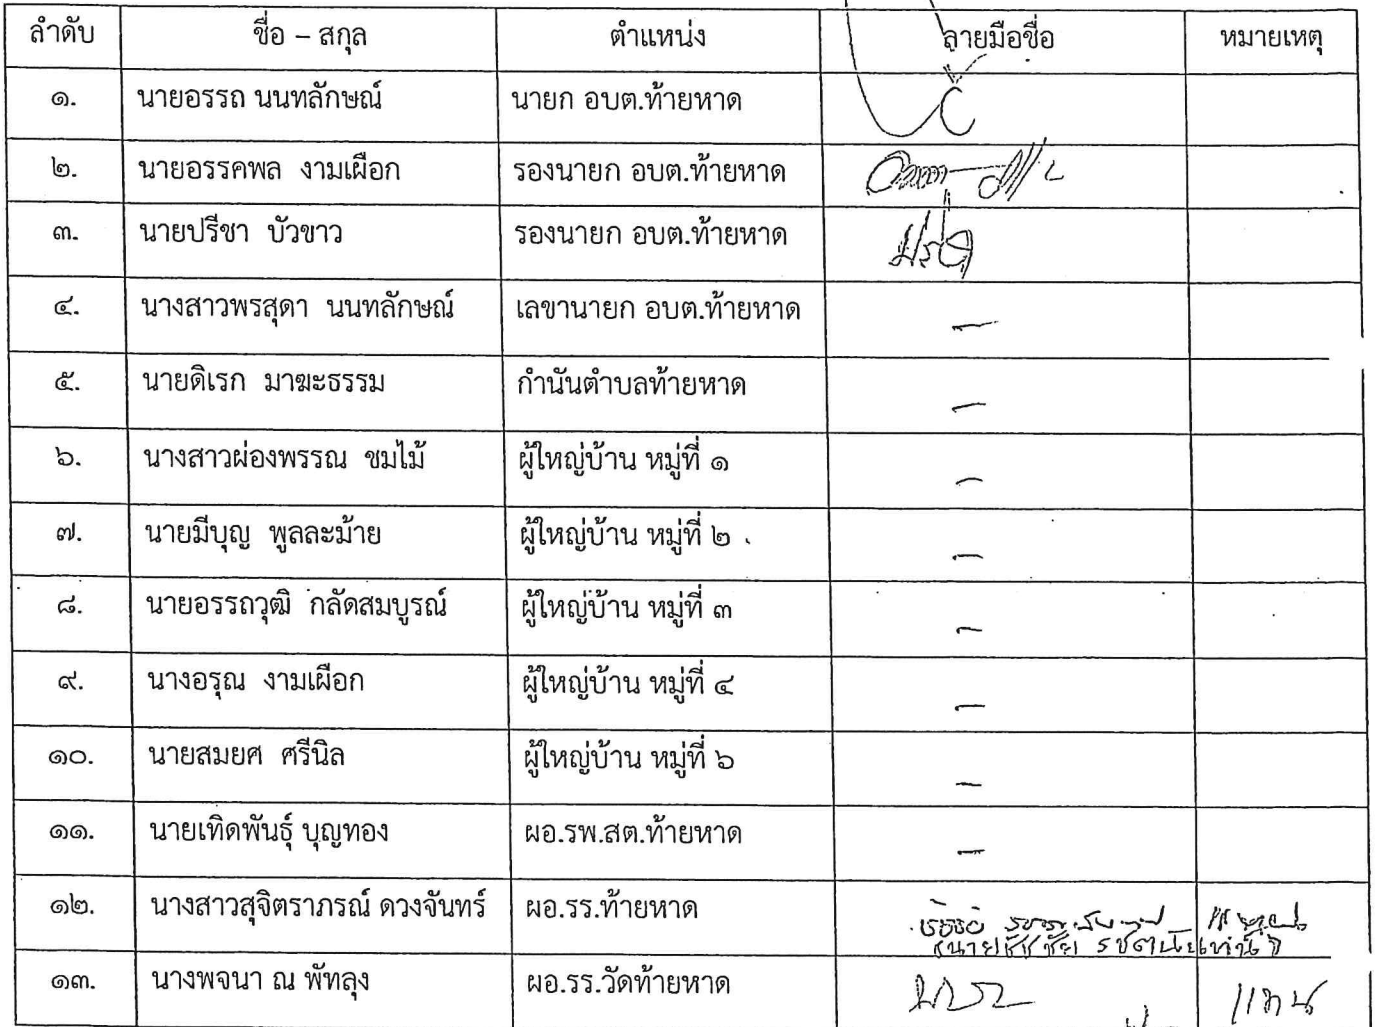 ลำดับ ชื่อ – สกุล ตำแหน่ง ลายมือชื่อ หมายเหตุ
๑. นายอรรถ นนทลักษณ์ นายก อบต.ท้ายหาด
๒. นายอรรคพล งามเผือก รองนายก อบต.ท้ายหาด
๓. นายปรีชา บัวขาว รองนายก อบต.ท้ายหาด ปรีชา
๔. นางสาวพรสุดา นนทลักษณ์ เลขานายก อบต.ท้ายหาด –
๕. นายดิเรก มาฆะธรรม กำนันตำบลท้ายหาด –
๖. นางสาวผ่องพรรณ ชมไม้ ผู้ใหญ่บ้าน หมู่ที่ ๑ –
๗. นายมีบุญ พูลละม้าย ผู้ใหญ่บ้าน หมู่ที่ ๒ –
๘. นายอรรถวุฒิ กลัดสมบูรณ์ ผู้ใหญ่บ้าน หมู่ที่ ๓ –
๙. นางอรุณ งามเผือก ผู้ใหญ่บ้าน หมู่ที่ ๔ –
๑๐. นายสมยศ ศรีนิล ผู้ใหญ่บ้าน หมู่ที่ ๖ –
๑๑. นายเทิดพันธุ์ บุญทอง ผอ.รพ.สต.ท้ายหาด –
๑๒. นางสาวสุจิตราภรณ์ ดวงจันทร์ ผอ.รร.ท้ายหาด
๑๓. นางพจนา ณ พัทลุง ผอ.รร.วัดท้ายหาด แทน